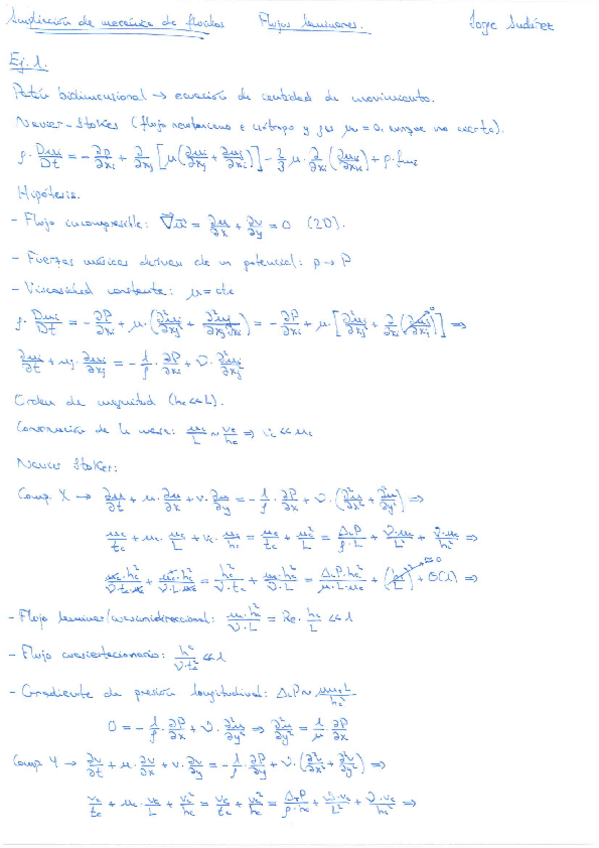 Ampliación de mecánica de fluidos Flujos laminares. Jorge Suárez
Ej. 1.
Patín bidimensional → ecuación de cantidad de movimiento.
Navier-Stokes (flujo newtoniano e isótropo y μv = 0, aunque no exacto).
ρ · Dui/Dt = -∂p/∂xi + ∂/∂xj [μ(∂ui/∂xj + ∂uj/∂xi)] - 2/3 μ · ∂/∂xi (∂uk/∂xk) + ρ · fmi
Hipótesis.
- Flujo incompresible: ∇u = ∂u/∂x + ∂v/∂y = 0 (2D).
- Fuerzas másicas derivan de un potencial: p → P
- Viscosidad constante: μ = cte
ρ · Dui/Dt = -∂P/∂xi + μ · (∂²ui/∂xj² + ∂²uj/∂xj∂xi) = -∂P/∂xi + μ · [∂²ui/∂xj² + ∂/∂xi (∂uj/∂xj)] ⇒
∂ui/∂t + uj · ∂ui/∂xj = -1/ρ · ∂P/∂xi + ν · ∂²ui/∂xj²
Orden de magnitud (hc << L).
Conservación de la masa: uc/L ~ vc/hc ⇒ vc << uc
Navier Stokes:
Comp. X → ∂u/∂t + u · ∂u/∂x + v · ∂u/∂y = -1/ρ · ∂P/∂x + ν · (∂²u/∂x² + ∂²u/∂y²) ⇒
uc/tc + uc · uc/L + vc · uc/hc = uc/tc + uc²/L = ΔcP/ρ·L + ν·uc/L² + ν·uc/hc² ⇒
uc·hc²/ν·tc·uc + uc²·hc²/ν·L·uc = hc²/ν·tc + uc·hc²/ν·L = ΔcP·hc²/μ·L·uc + (hc/L)² + O(1) ⇒
- Flujo laminar/cuasiunidireccional: uc·hc²/ν·L = Re · hc/L << 1
- Flujo cuasiestacionario: hc²/ν·tc << 1
- Gradiente de presión longitudinal: ΔcP ~ μucL/hc²
0 = -1/ρ · ∂P/∂x + ν · ∂²u/∂y² ⇒ ∂²u/∂y² = 1/μ · ∂P/∂x
Comp. Y → ∂v/∂t + u · ∂v/∂x + v · ∂v/∂y = -1/ρ · ∂P/∂y + ν · (∂²v/∂x² + ∂²v/∂y²) ⇒
vc/tc + uc · vc/L + vc²/hc = vc/tc + vc²/hc = ΔTP/ρ·hc + ν·vc/L² + ν·vc/hc² ⇒